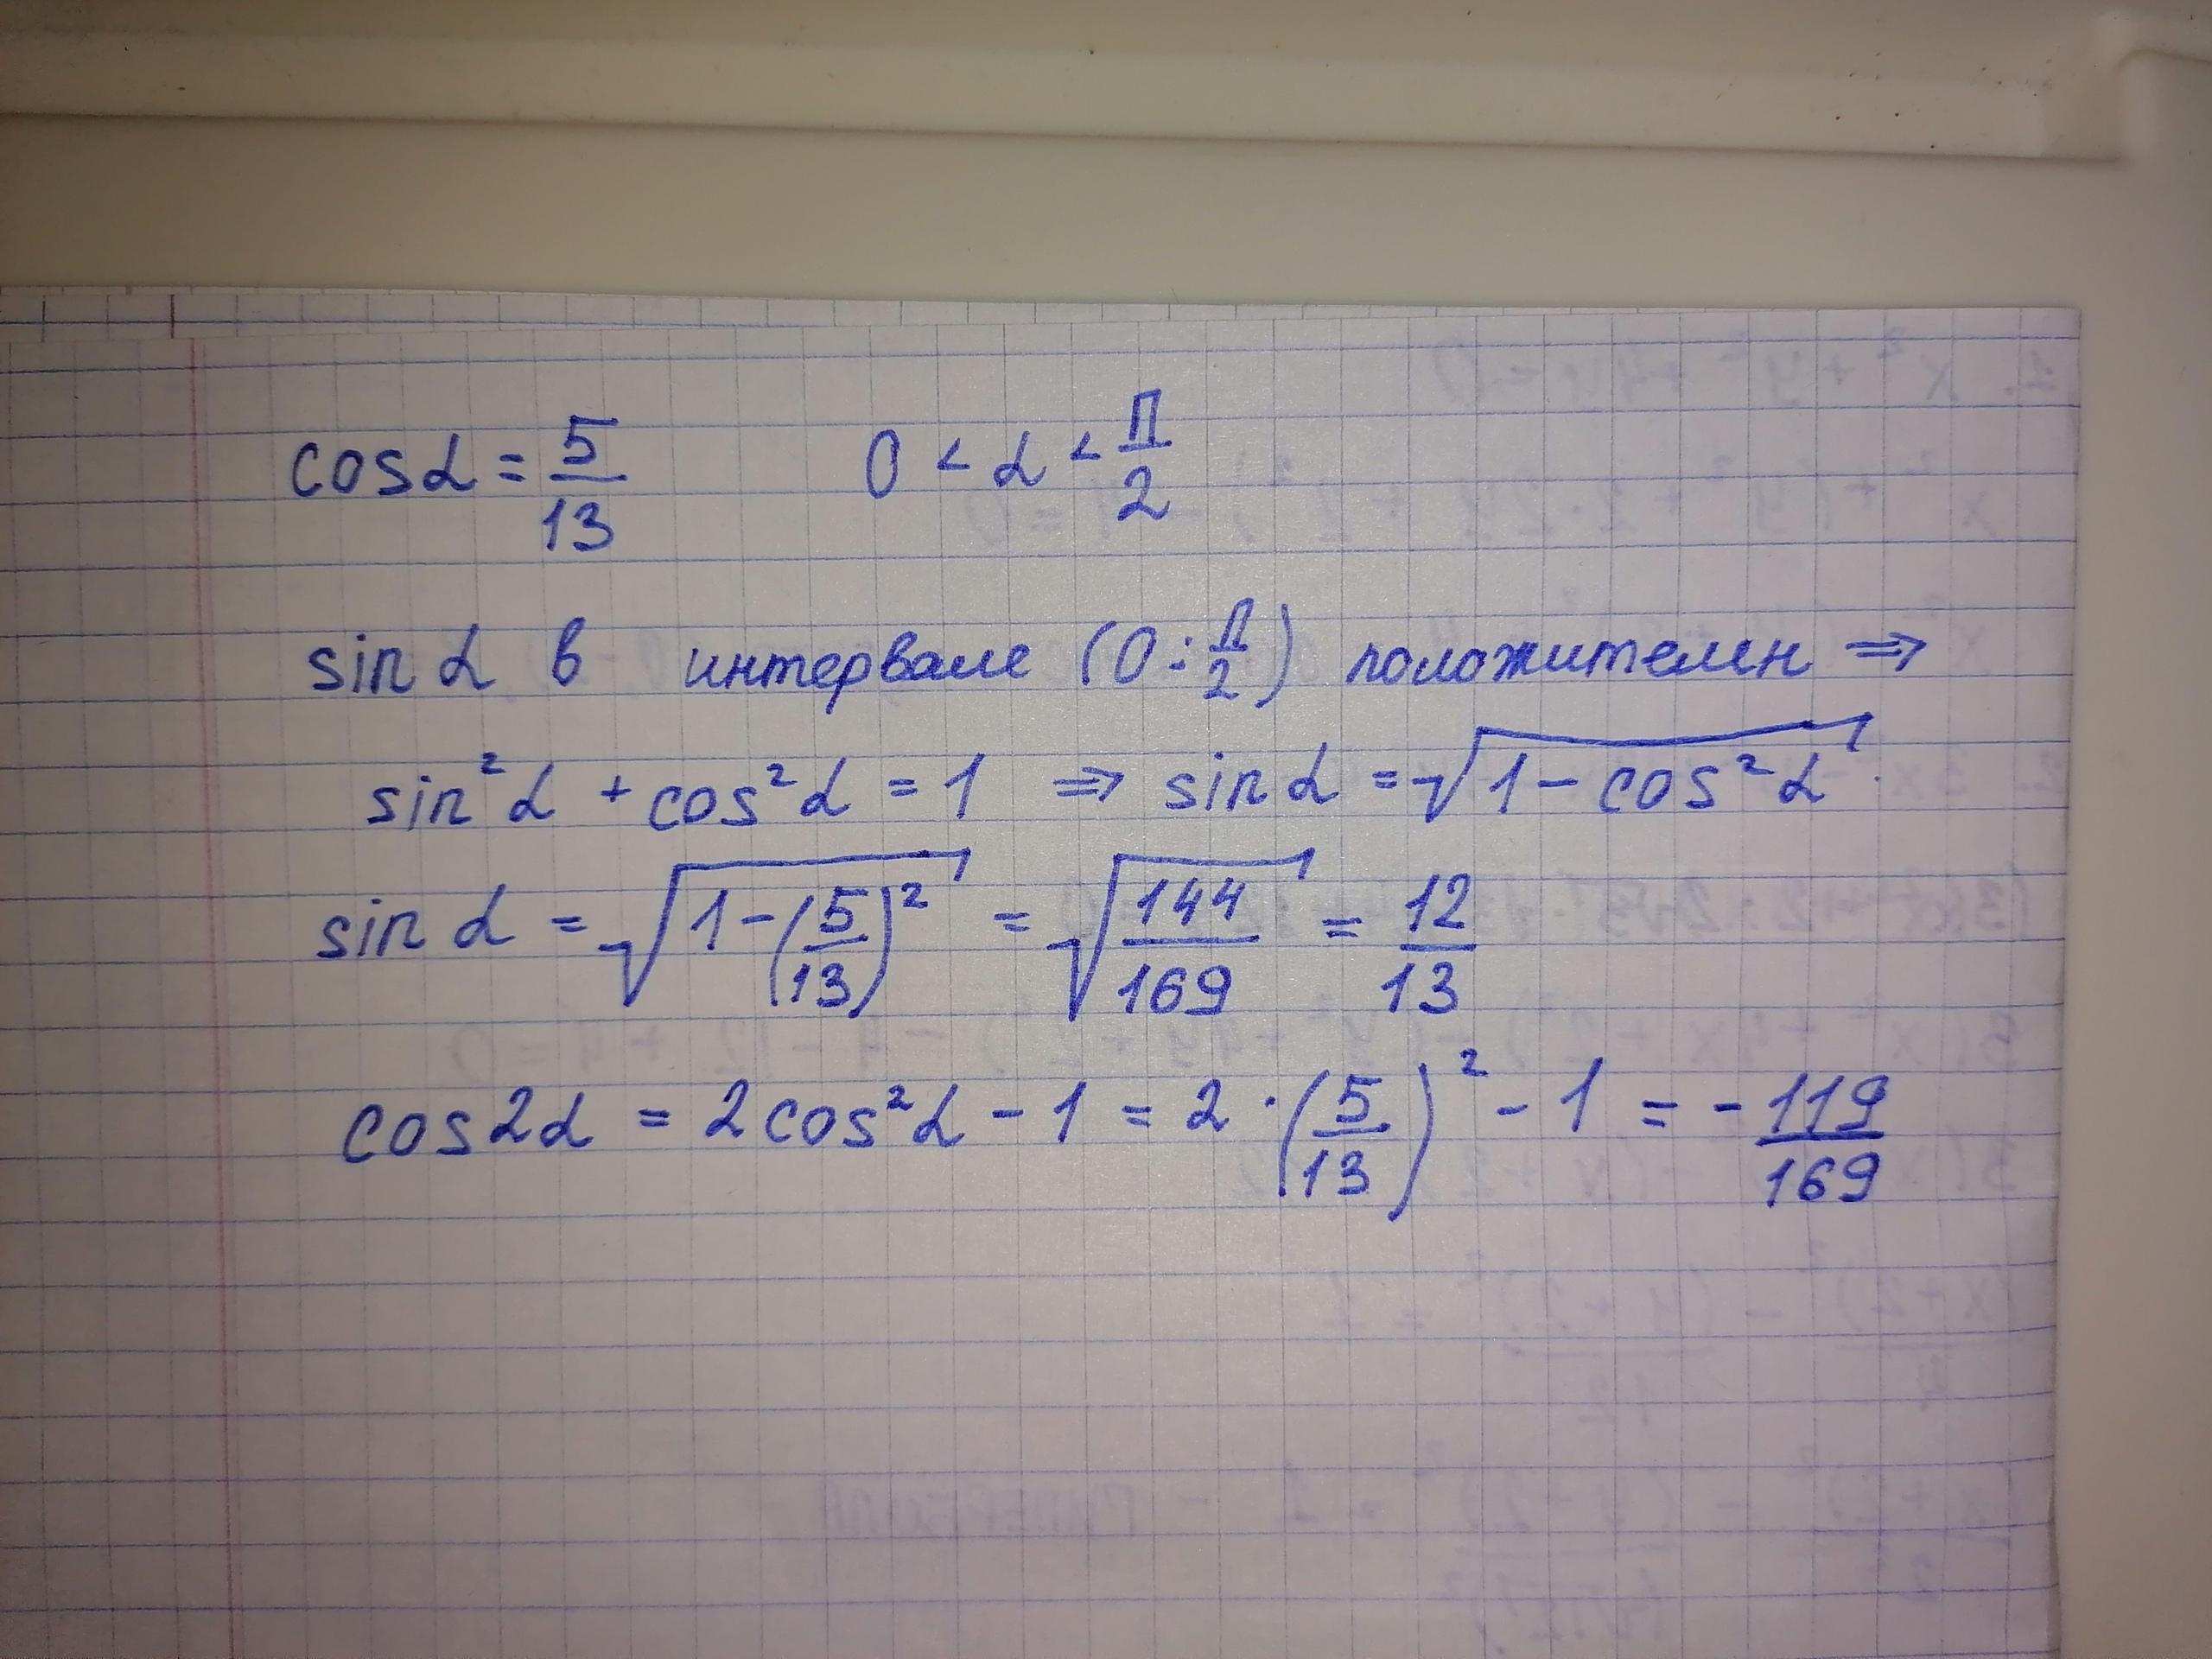 cosα = 5/13 0 < α < П/2
sin α в интервале (0; П/2) положителен ⇒
sin²α + cos²α = 1 ⇒ sin α = √(1 - cos²α)
sin α = √(1 - (5/13)²) = √(144/169) = 12/13
cos2α = 2cos²α - 1 = 2 · (5/13)² - 1 = - 119/169